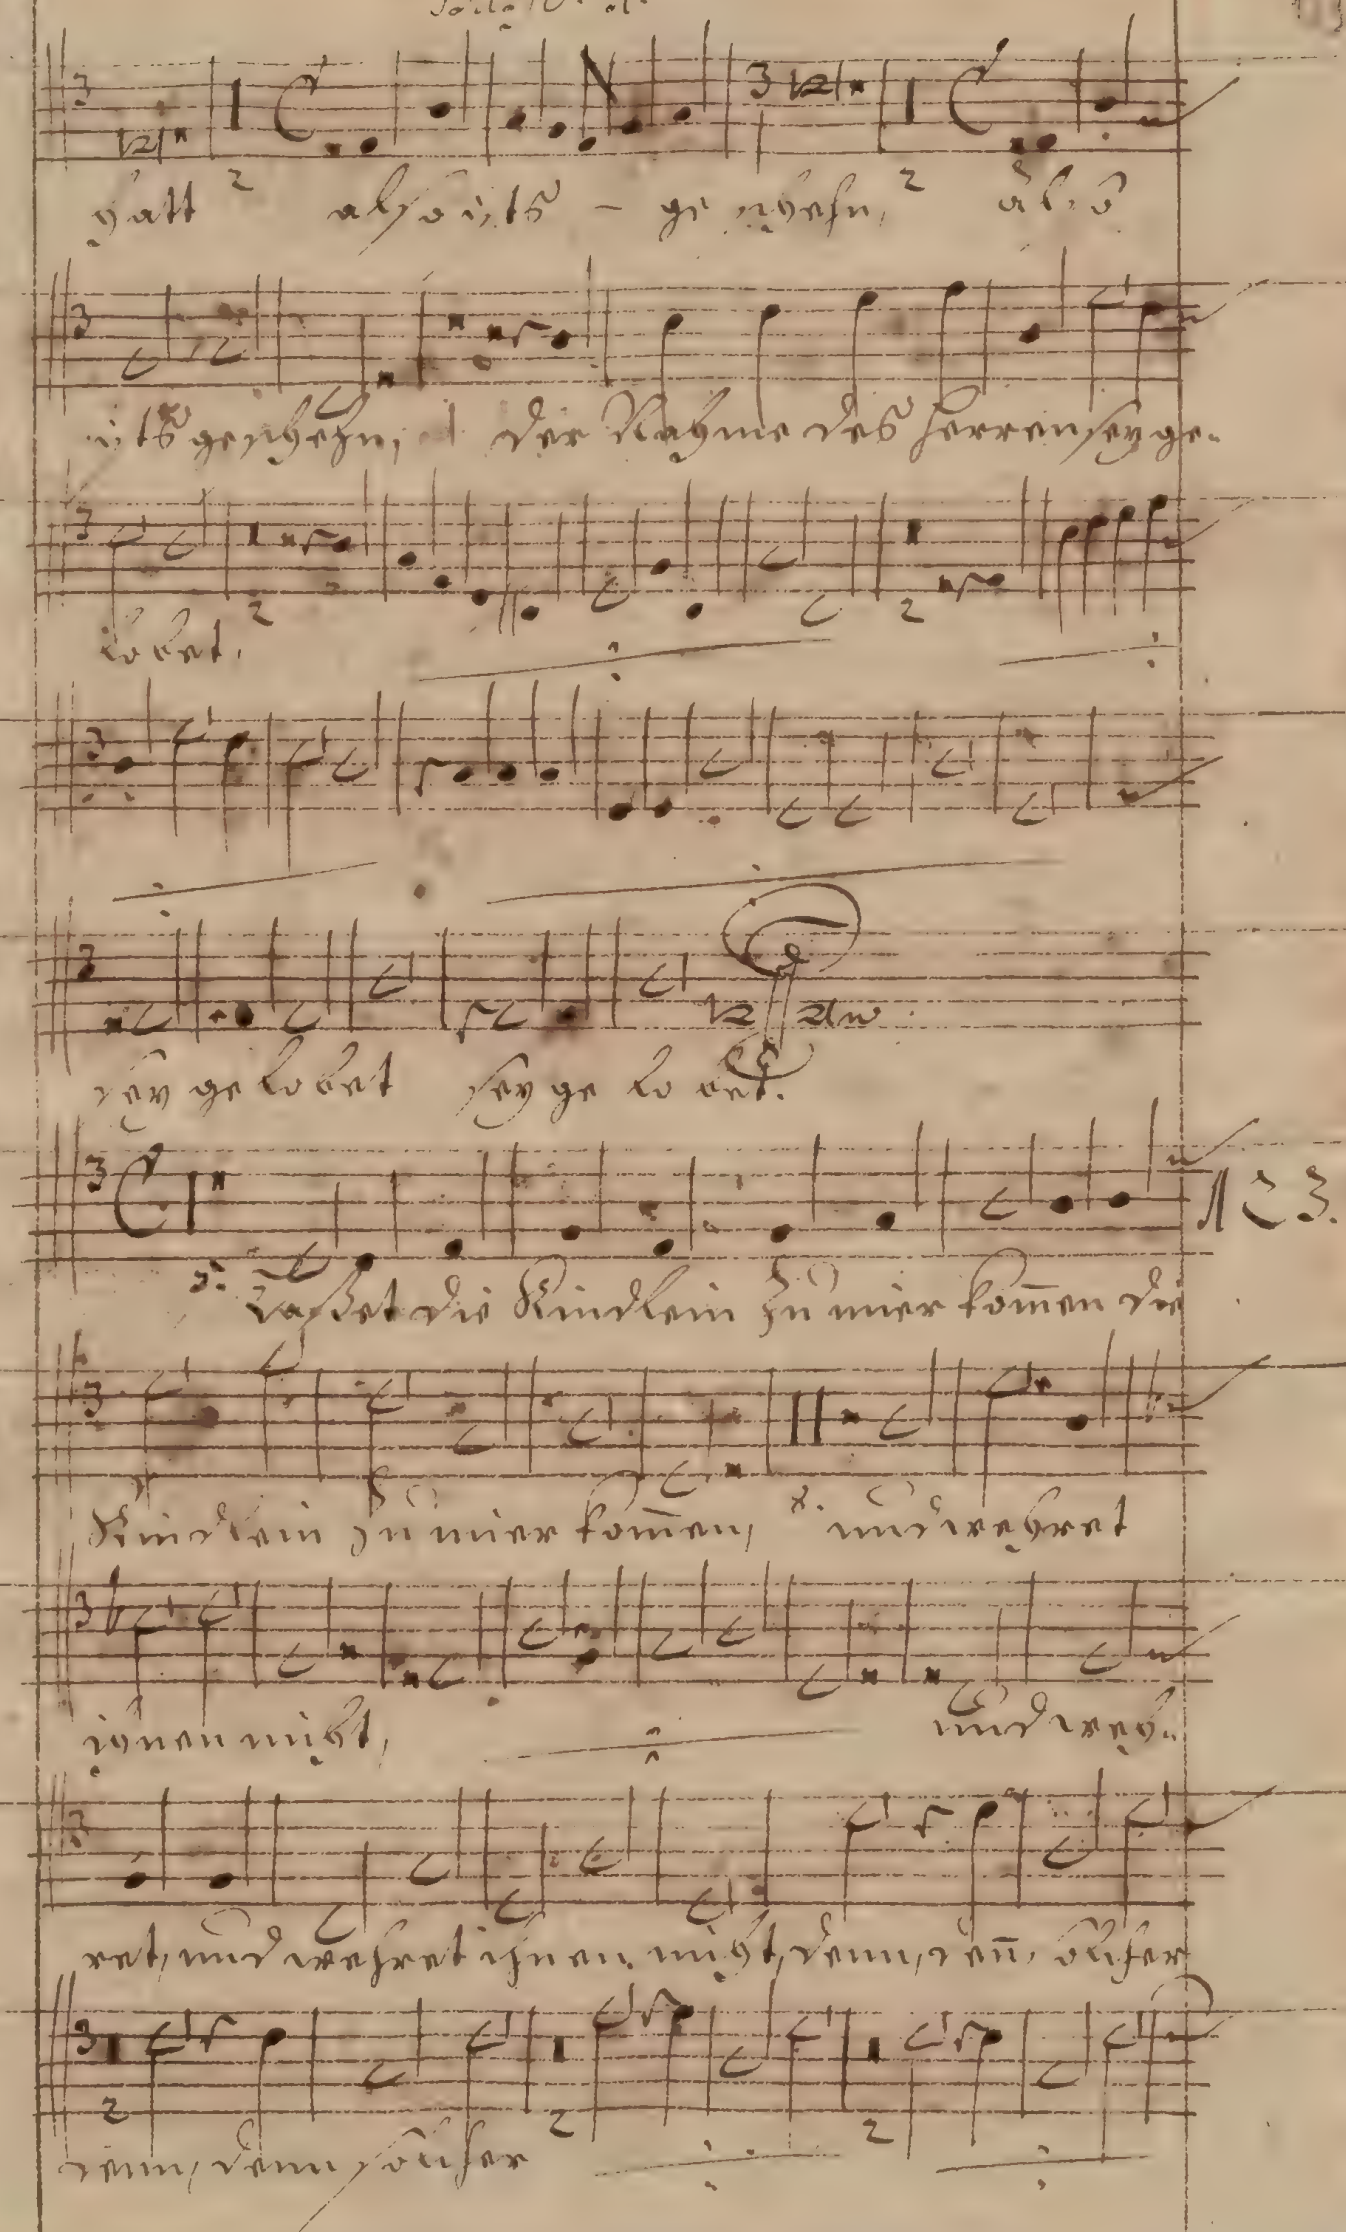 hatt also ists - geschehn, also
ists geschehn, der Nahme des Herren sey ge-
lobet.
sey gelobet sey gelobet.
123.
Laßet die Kindlein zu mier kom̄en die
Kindlein zu mier kom̄en, und wehret
ihnen nicht, und weh-
ret, und wehret ihnen nicht, denn, den̄, solcher
denn, denn solcher